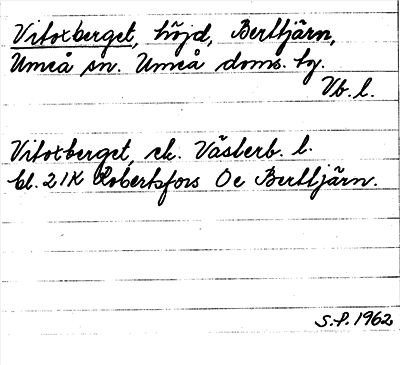 Vitoxberget, höjd, Berttjärn,
Umeå sn. Umeå doms. tg.
Vb. l.
Vitoxberget, ek. Västerb. l.
bl. 21K Robertsfors Oc Berttjärn.
S.P. 1962